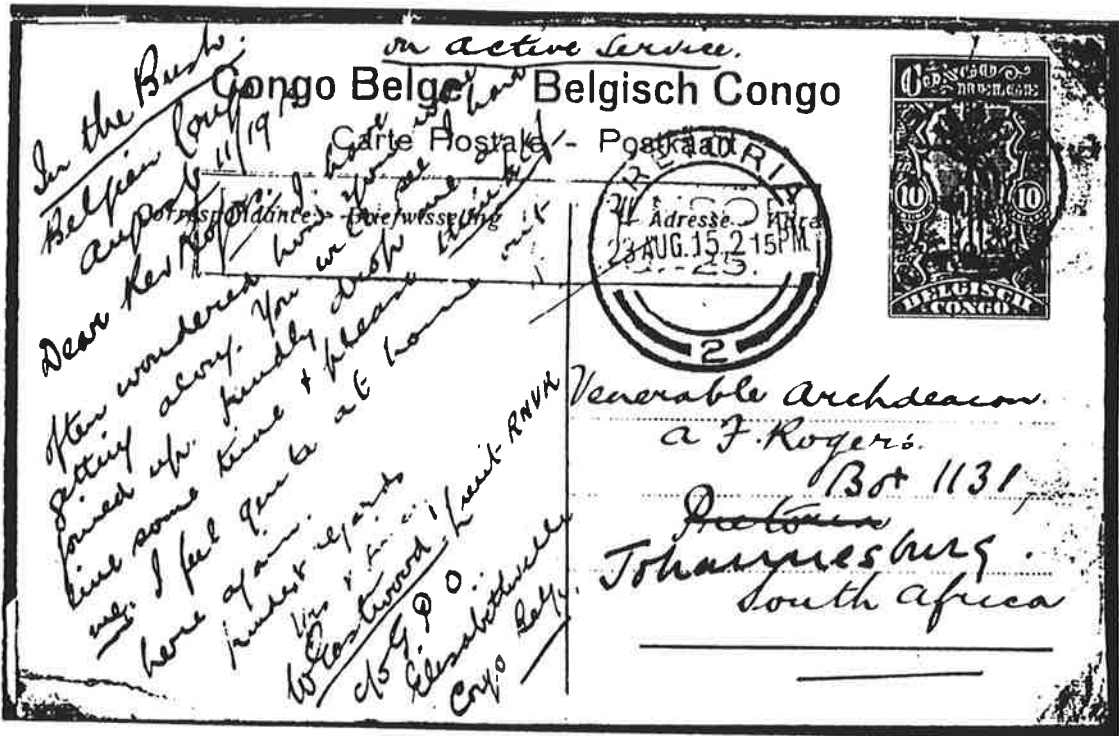 on active Service.
Congo Belge Belgisch Congo
Carte Postale - Postkaart
Correspondance - Briefwisseling
Adresse
PRETORIA
23 AUG.15.2 15PM
2
CONGO BELGE
10 10
BELGISCH
CONGO
In the Bush.
Belgian Congo
August 11/19
Dear Rev Rogers. I hope
often wondered how you were
getting along. You see I have
joined up. Kindly drop me
line some time & please
me. I feel quite at home out
here again.
kindest regards
Mrs &
W Eastwood Lieut- RNVR
c/o G P O
Elisabethville
Congo Belge.
Venerable Archdeacon.
a F. Rogers.
Box 1131,
Pretoria
Johannesburg.
South Africa